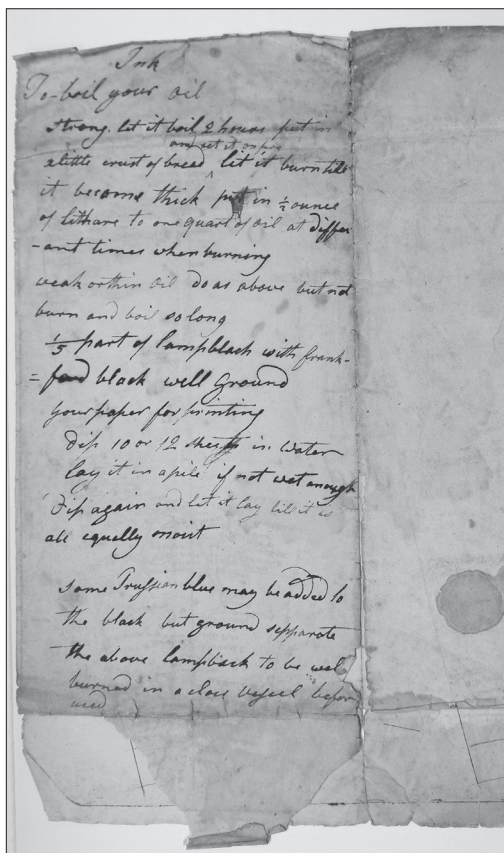 Ink
To boil your oil
strong. let it boil 2 hours put in
and set it on fire
a little crust of bread let it burn till
it become thick put in ½ ounce
of lithare to one quart of oil at differ
-ant times when burning
weak or thin oil do as above but not
burn and boil so long
⅕ part of lampblack with frank-
= ford black well ground
your paper for printing
Dip 10 or 12 sheets in water
lay it in a pile if not wet enough
Dip again and let it lay till it is
all equelly moist
some Prussian blue may be added to
the black but ground sepparate
the above lampback to be well
burned in a close vessel before
used